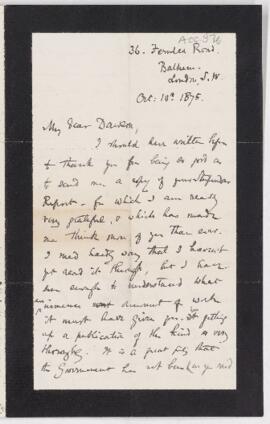 36. Fernlea Road.
Balham.
London S.W.
Oct: 10th 1875.
My dear Dawson,
I should have written before
to thank you for being so good as
to send me a copy of your splendid
Report - for which I am really
very grateful, & which has made
me think more of you than ever.
I need hardly say that I haven't
yet read it through, but I have
seen enough to understand what
an immense amount of work
it must have given you getting
up a publication of the kind so very
thoroughly. It is a great pity that
the Government has not